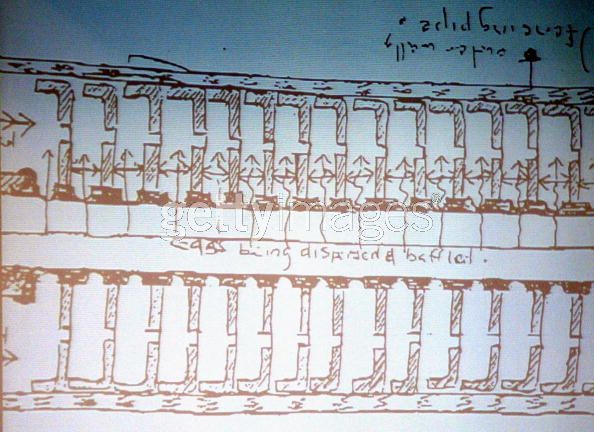 outer wall
(fencing pipe.
gettyimages®
gas being dispersed & baffled.